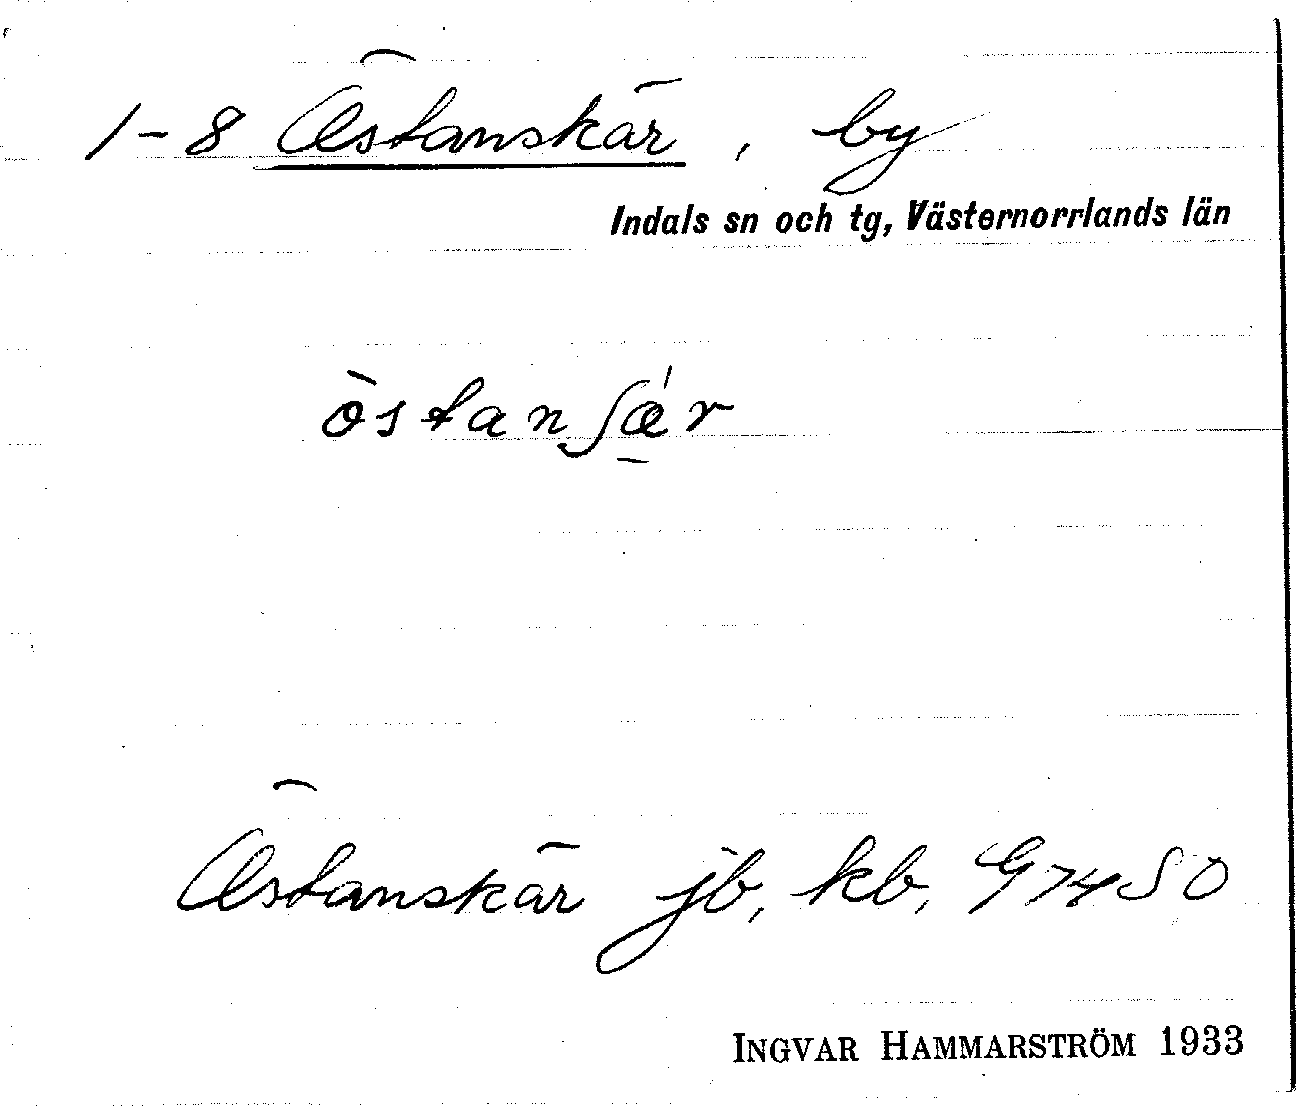 1-8 Östanskär, by
Indals sn och tg, Västernorrlands län
òstanʃǽr
Östanskär jb, kb, G74SO
INGVAR HAMMARSTRÖM 1933